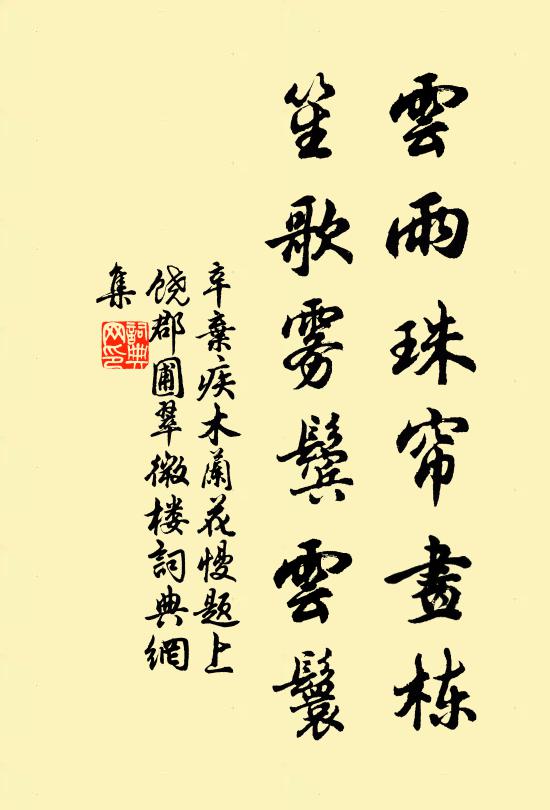 雲雨珠帘畫栋
笙歌雾鬓雲鬟
辛棄疾木蘭花慢题上
饶郡圃翠微楼詞典網
集
詞典網印